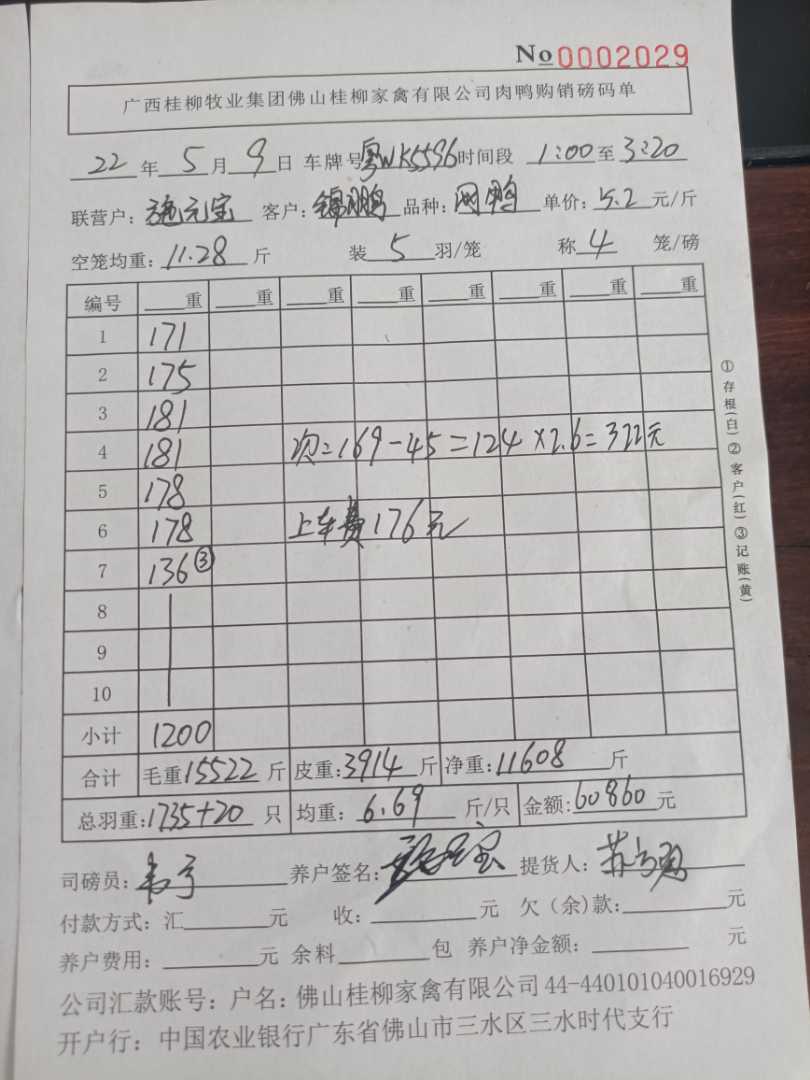 No 0002029
广西桂柳牧业集团佛山桂柳家禽有限公司肉鸭购销磅码单
22 年 5 月 9 日 车牌号 粤WK5596 时间段 1:00 至 3:20
联营户: 施元宝 客户: 锦鹏 品种: 网鸭 单价: 5.2 元/斤
空笼均重: 11.28 斤 装 5 羽/笼 称 4 笼/磅
编号 重 重 重 重 重 重 重 重
1 171
2 175
3 181
4 181 次=169-45=124×2.6=322元
5 178
6 178 上车费176元
7 136 ③
8
9
10
小计 1200
合计 毛重 15522 斤 皮重: 3914 斤 净重: 11608 斤
总羽重: 1735+20 只 均重: 6.69 斤/只 金额: 60860 元
司磅员: 养户签名: 提货人:
付款方式: 汇 元 收: 元 欠(余)款: 元
养户费用: 元 余料 包 养户净金额: 元
公司汇款账号: 户名: 佛山桂柳家禽有限公司 44-440101040016929
开户行: 中国农业银行广东省佛山市三水区三水时代支行
①存根(白)②客户(红)③记账(黄)